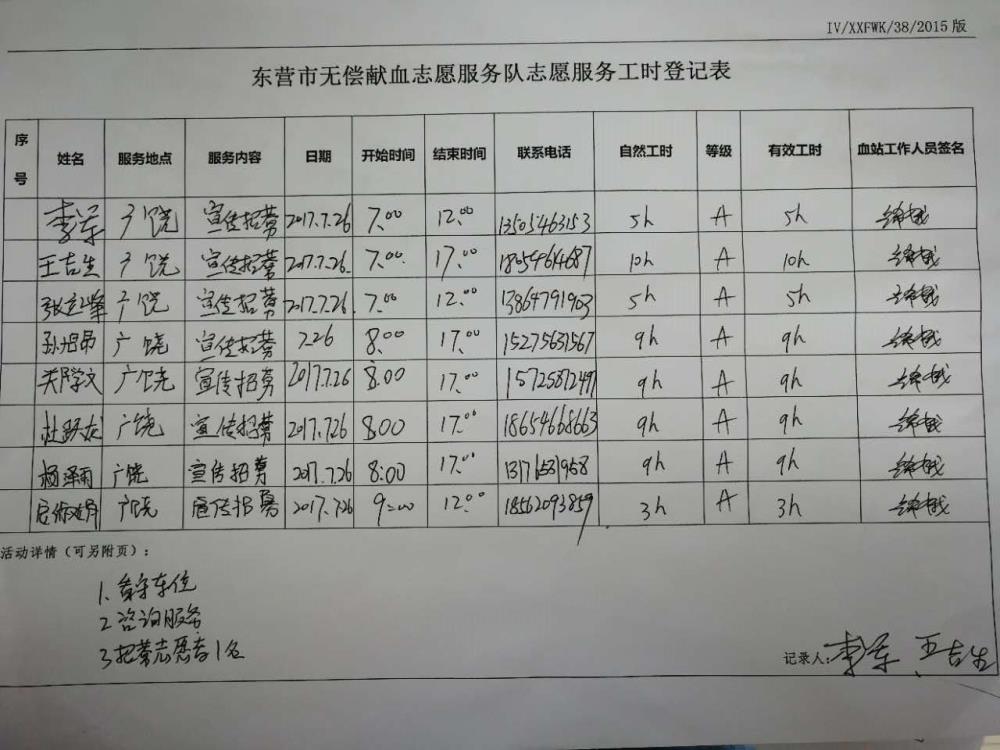 IV/XXFWK/38/2015版
东营市无偿献血志愿服务队志愿服务工时登记表
序号 姓名 服务地点 服务内容 日期 开始时间 结束时间 联系电话 自然工时 等级 有效工时 血站工作人员签名
李军 广饶 宣传招募 2017.7.26 7.00 12.00 13505463153 5h A 5h
王吉生 广饶 宣传招募 2017.7.26. 7.00. 17.00 18054614687 10h A 10h
广饶 宣传招募 2017.7.26. 7.00 12.00 13864791903 5h A 5h
广饶 宣传招募 7.26 8.00 17.00 15275631567 9h A 9h
广饶 宣传招募 2017.7.26 8.00 17.00 15725872497 9h A 9h
杜跃龙 广饶 宣传招募 2017.7.26 8.00 17.00 18654668663 9h A 9h
杨泽雨 广饶 宣传招募 2017.7.26 8:00 17.00 9h A 9h
广饶 宣传招募 2017.7.26 9:00 12.00 18562093859 3h A 3h
活动详情（可另附页）：
1. 车位
2 咨询服务
3 招募志愿者1名
记录人: 李军 王吉生